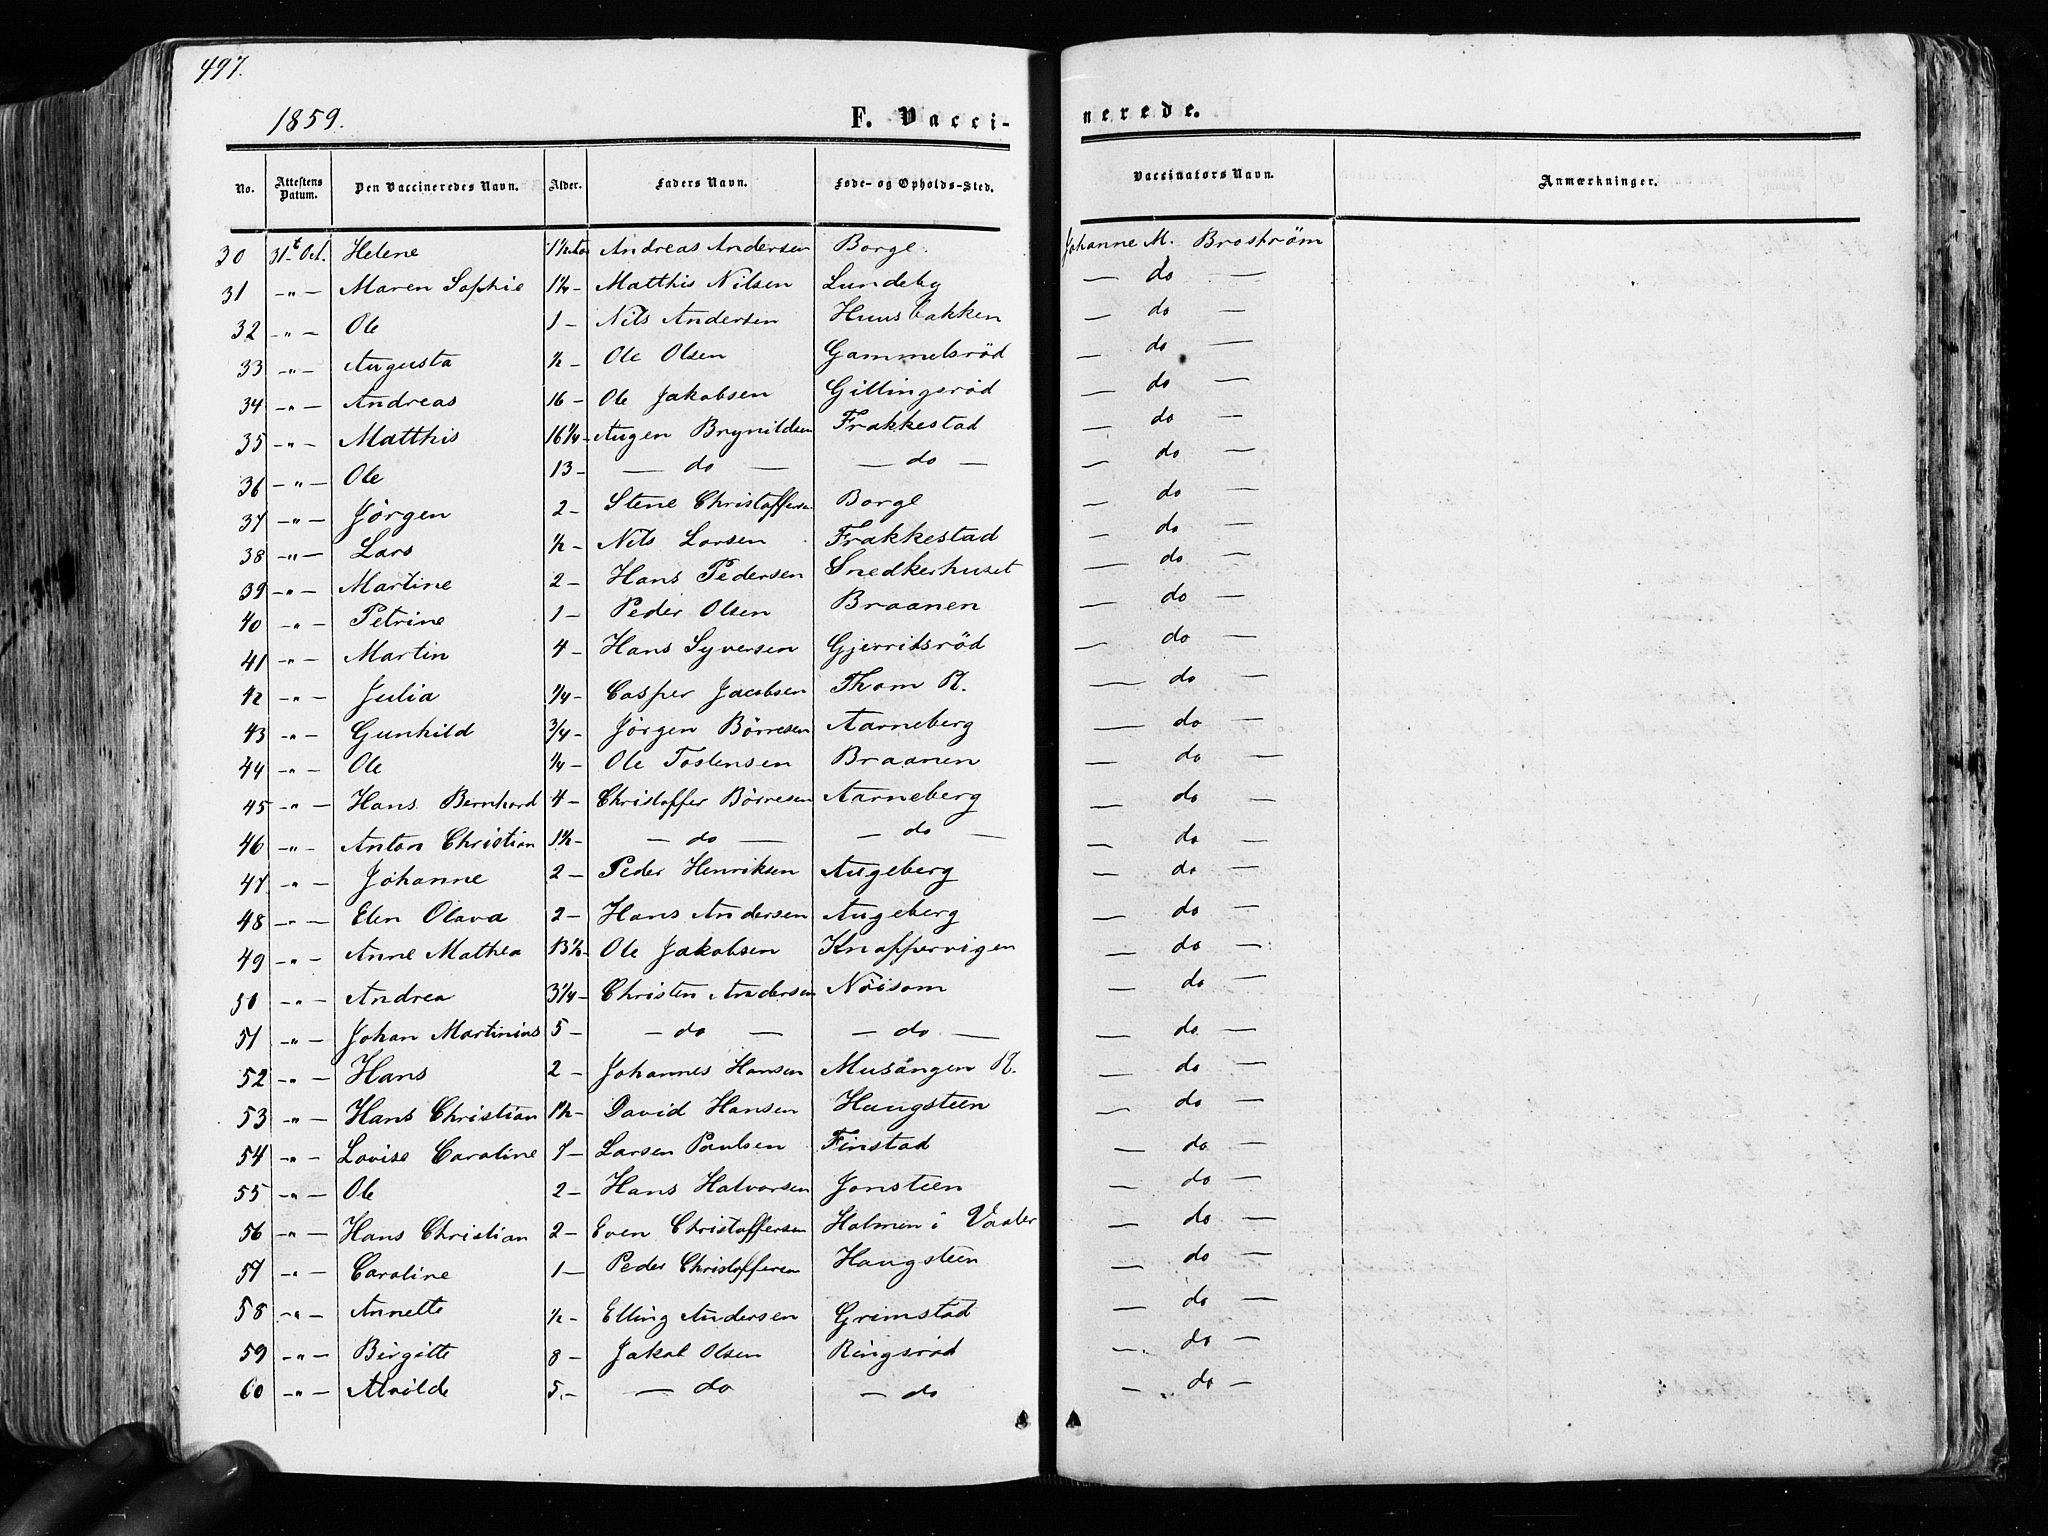 497.
1859. F. Vacci- nerede.
No. Attestens Datum. Den Vaccineredes Navn. Alder. Faders Navn. Føde- og Opholds-Sted. Vaccinators Navn. Anmærkninger.
30 31t Oct. Helene 1½ Andreas Andersen Borge. Johanne M. Broström
31 -"- Maren Sophie 1¼- Matthis Nilsen Lundeby — do —
32 -"- Ole 1- Nils Andersen Huusbakken — do —
33 -"- Augusta ½- Ole Olsen Gammelsröd — do —
34 -"- Andreas 16- Ole Jakobsen Gillingsröd — do —
35 -"- Matthis 16¼- Augen Brynildsen Frakkestad — do —
36 -"- Ole 13- — do — — do — — do —
37 -"- Jörgen 2- Stene Christoffersen Borge — do —
38 -"- Lars ½- Nils Larsen Frakkestad — do —
39 -"- Martine 2- Hans Pedersen Snedkerhuset — do —
40 -"- Petrine 1- Peder Olsen Braanen — do —
41 -"- Martin 4- Hans Syversen Gjerritsröd — do —
42 -"- Julia ¼- Casper Jacobsen Thom R. — do —
43 -"- Gunhild 3/4- Jörgen Börresen Aarneberg — do —
44 -"- Ole ¼- Ole Tostensen Braanen — do —
45 -"- Hans Bernhard 4- Christoffer Börresen Aarneberg — do —
46 -"- Anton Christian 1½- — do — — do — — do —
47 -"- Johanne 2- Peder Henriksen Augeberg — do —
48 -"- Elen Olava 2- Hans Andersen Augeberg — do —
49 -"- Anne Mathea 13½- Ole Jakobsen Knappervigen — do —
50 -"- Andrea 3¼- Christen Andersen Nöisom — do —
51 -"- Johan Martinius 5- — do — — do — — do —
52 -"- Hans 2- Johannes Hansen Musången R. — do —
53 -"- Hans Christian 1½- David Hansen Haugsteen — do —
54 -"- Lovise Caroline 7- Larsen Paulsen Finstad — do —
55 -"- Ole 2- Hans Halvorsen Jonsteen — do —
56 -"- Hans Christian 2- Even Christoffersen Holmen i Vaaler — do —
57 -"- Caroline 1- Peder Christoffersen Haugsteen — do —
58 -"- Annette ½- Elling Andersen Grimstad — do —
59 -"- Birgitte 8- Jakob Olsen Ringsröd — do —
60 -"- Alvilde 5.- — do — do — do —